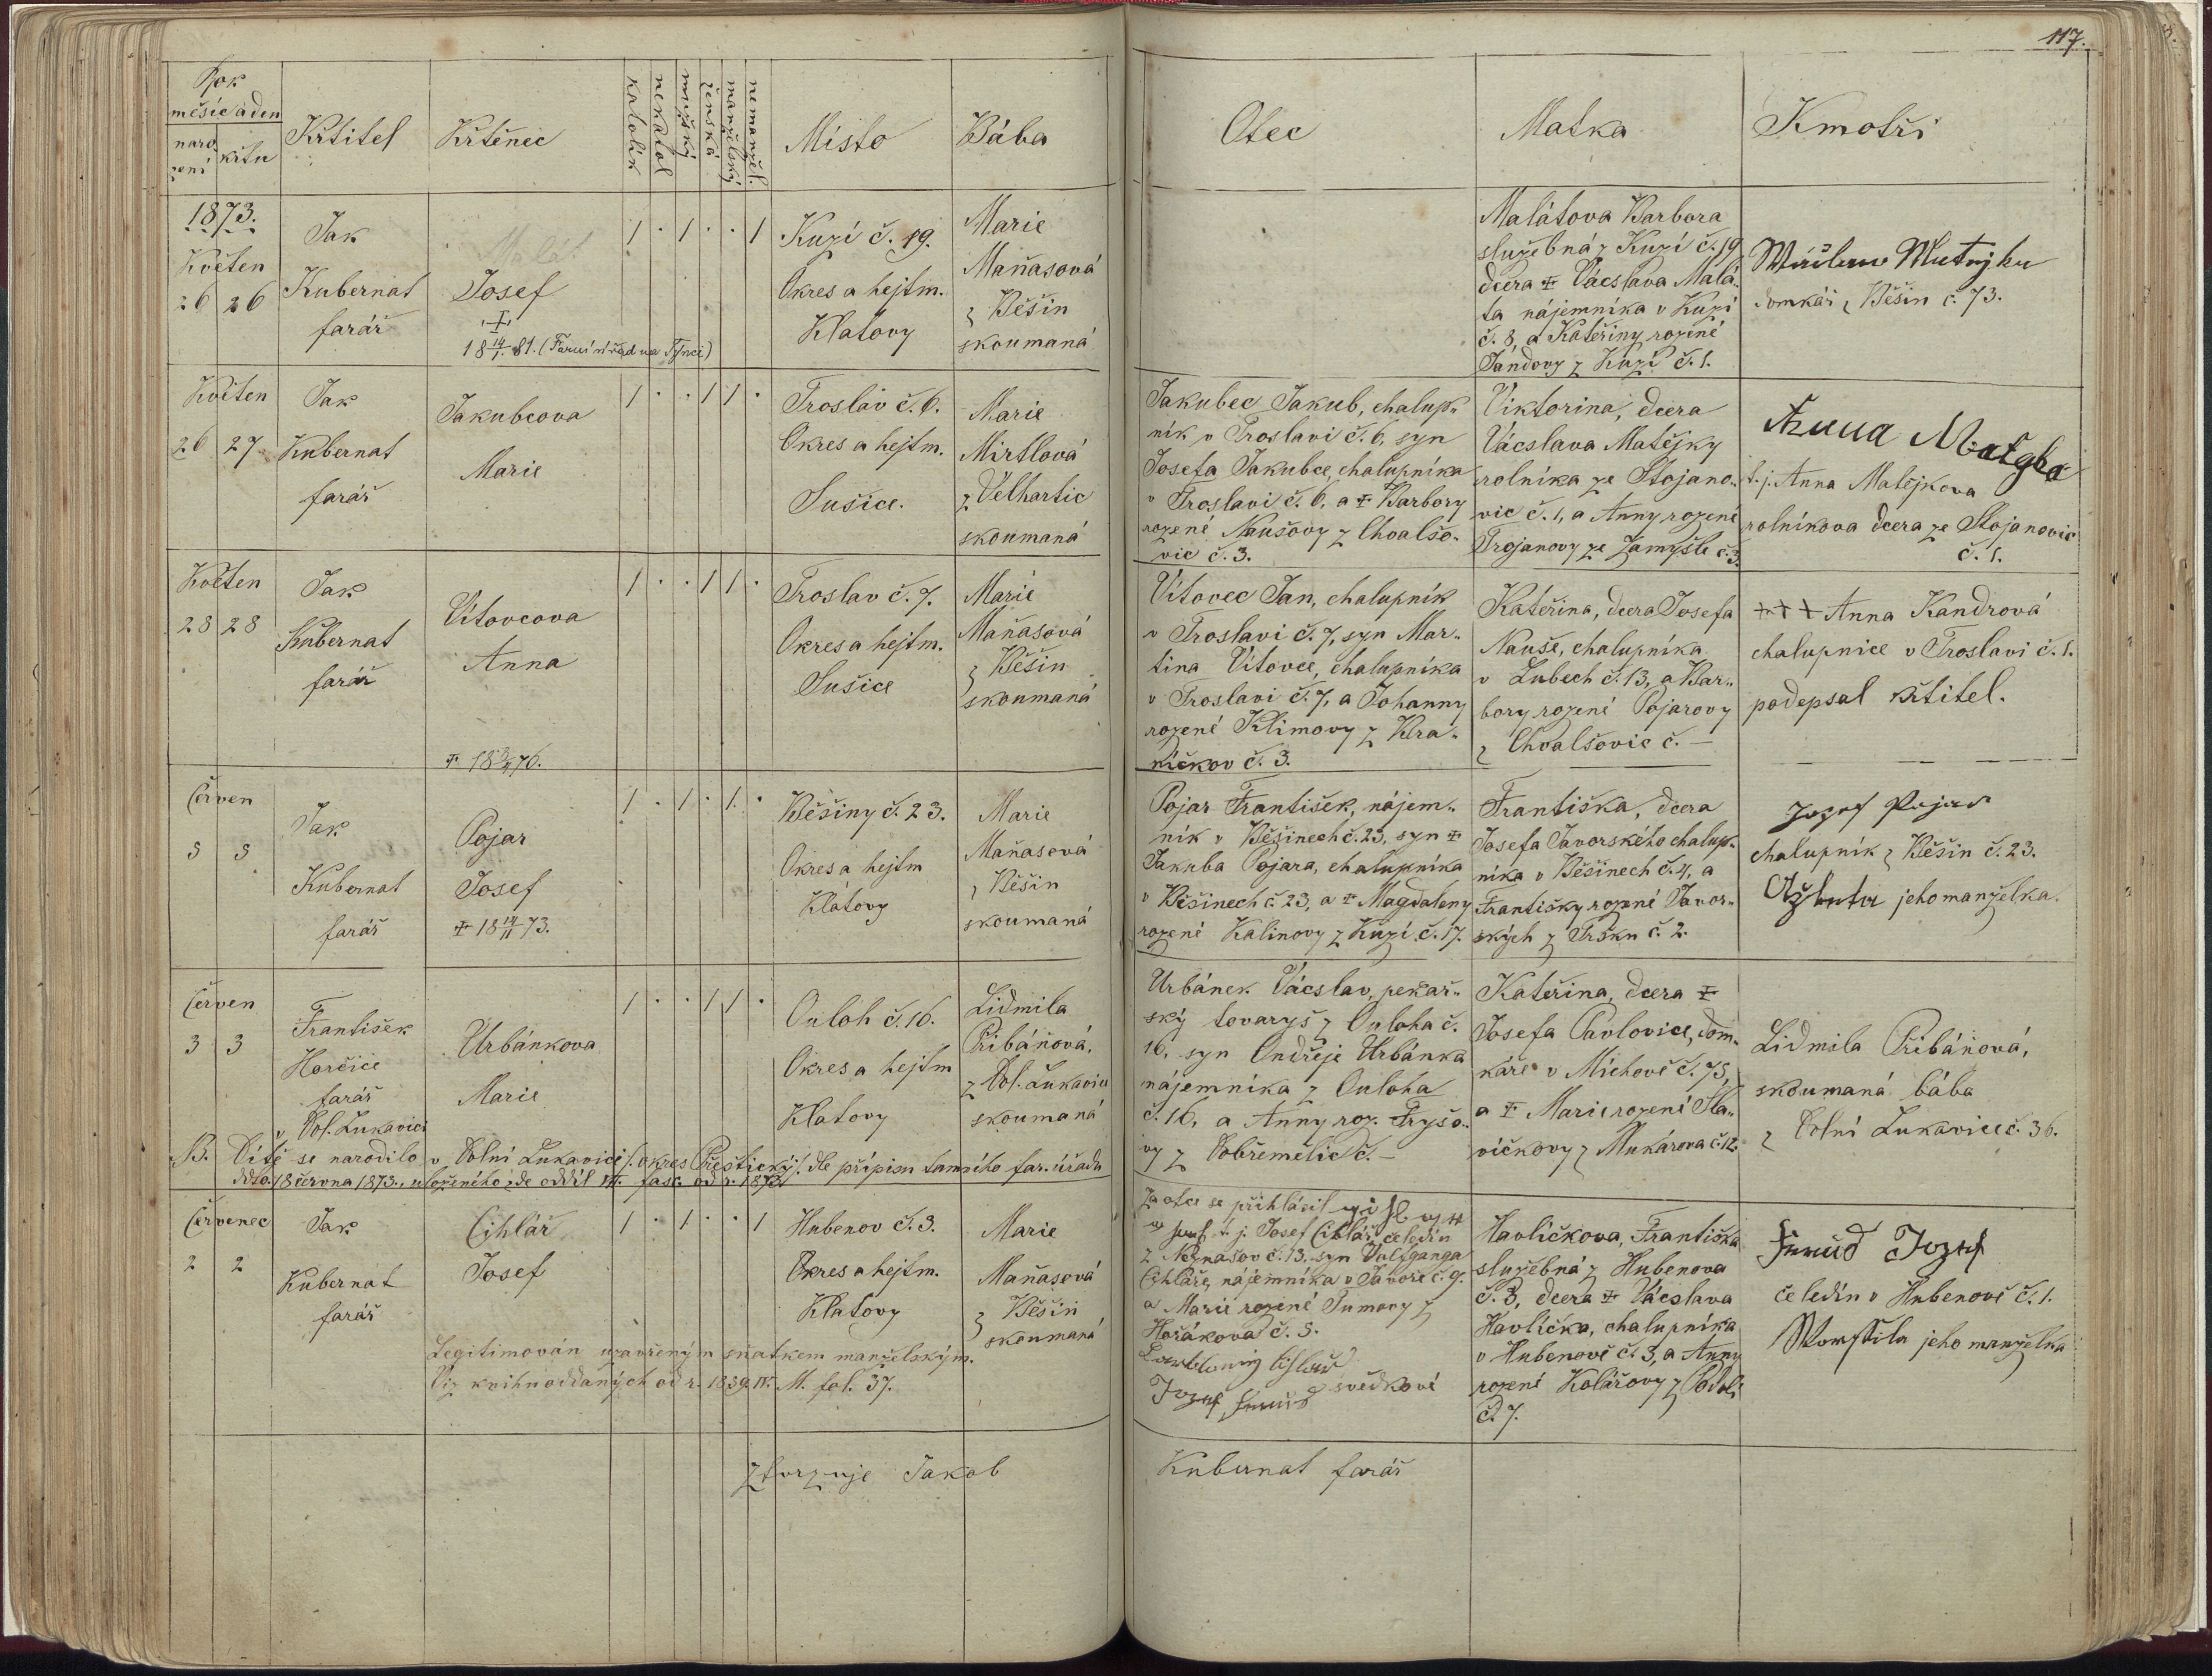 117.
Rok
měsíc a den
naro
zení
křtu
Křtitel
Křtěnec
katolík
nekatol
mužský
ženská
manželský
nemanžel.
Místo
Bába
Otec
Matka
Kmotři
1873.
Květen
26 26
Jak
Kubernat
farář
Malát
Josef
18 14/1. 81. (Farní úřad na Týnci)
1 . 1 . . 1
Kuzí č. 19.
Okres a hejtm.
Klatovy
Marie
Maňasová
z Běšin
skoumaná
Malátova Barbora
služebná z Kuzí č. 19
dcera ✝ Vácslava Malá„
ta nájemníka v Kuzí
č. 8, a Kateřiny rozené
Jandovy z Kuzí č. 1.
domkář z Běšin č. 73.
Květen
26 27
Jak
Kubernat
farář
Jakubcova
Marie
1 . . 1 1 .
Troslav č. 6.
Okres a hejtm.
Sušice.
Marie
Mirtlová
z Velhartic
skoumaná
Jakubec Jakub, chalup„
ník v Troslavi č. 6, syn
Josefa Jakubce, chalupníka
v Troslavi č. 6, a ✝ Barbory
rozené Naušovy z Chvalšo„
vic č. 3.
Viktorina, dcera
Vácslava Matějky
rolníka ze Stojano„
vic č. 1, a Anny rozené
Trojanovy ze Zamyšle č. 3.
Anna
t. j. Anna Matějkova
rolníkova dcera ze Stojanovic
č. 1.
Květen
28 28
Jak
Kubernat
farář
Vítovcova
Anna
1 . . 1 1 .
Troslav č. 7.
Okres a hejtm.
Sušice
Marie
Maňasová
z Běšin
skoumaná
Vítovec Jan, chalupník
v Troslavi č. 7, syn Mar„
tina Vítovce, chalupníka
v Troslavi č. 7, a Johanny
rozené Klimovy z Kra„
níčkov č. 3.
Kateřina, dcera Josefa
Nauše, chalupníka
v Lubech č. 13, a Bar„
bory rozené Pojarovy
z Chvalšovic č. —
+++ Anna Kandrová
chalupnice v Troslavi č. 1.
podepsal křtitel.
Červen
5 5
Jak
Kubernat
farář
Pojar
Josef
✝ 18 14/11 73.
1 . 1 . 1. .
Běšiny č. 23.
Okres a hejtm
Klatovy
Marie
Maňasová
z Běšin
skoumaná
Pojar František, nájem„
ník v Běšinech č. 23, syn ✝
Jakuba Pojara, chalupníka
v Běšinech č. 23, a ✝ Magdaleny
rozené Kalinovy z Kuzí č. 17.
Františka, dcera
Josefa Javorského chalup„
níka v Běšinech č. 4, a
Františky rozené Javor„
ských z Trsku č. 2.
Jozef Pojar
chalupník z Běšin č. 23.
jeho manželka.
Červen
3 3
František
Horčice
farář
v Dol. Lukavici
Urbánkova
Marie
1 . . 1 1 .
Ouloh č. 16.
Okres a hejtm
Klatovy
Lidmila
Přibáňová,
z Dol. Lukavice
skoumaná
Urbánek Vácslav, pekař„
ský tovaryš z Ouloha č.
16, syn Ondřeje Urbánka
nájemníka z Ouloha
č. 16, a Anny roz. Tryšo„
vy z Dobřemělic č. —
Kateřina, dcera ✝
Josefa Pavlovice, dom„
káře v Míchově č. 75,
a ✝ Marie rozené Sla„
víčkovy z Mukárova č. 12.
Lidmila Přibáňová,
skoumaná bába
z Dolní Lukavice č. 36.
B. Dítě se narodilo v Dolní Lukavici /: okres Přeštický :/. dle přípisu tamního far. úřadu
ddto. 18 června 1873., uloženého zde oddíl III. fasc. od r. 1873.
Červenec
2 2
Jak
Kubernat
farář
Cihlář
Josef
1 . 1 . . 1
Hubenov č. 3.
Okres a hejtm.
Klatovy
Marie
Maňasová
z Běšin
skoumaná
Legitimován uzavřeným sňatkem manželským.
Viz knihu oddaných od r. 1839. IV. M. fol. 37.
Za otce se přihlásil
t. j. Josef Cihlář, čeledín
z Neznašov č. 13, syn Volfganga
Cihláře, nájemníka v Javoře č. 9.
a Marie rozené Tumovy z
Hořákova č. 5.
svědkové
Havlíčkova, Františka
služebná z Hubenova
č. 3, dcera ✝ Vácslava
Havlíčka, chalupníka
v Hubenově č. 3, a Anny
rozené Kolářovy z Podolí
č. 7.
Jozef
čeledín v Hubenově č. 1.
jeho manželka
ztvrzuje Jakob
Kubernat farář